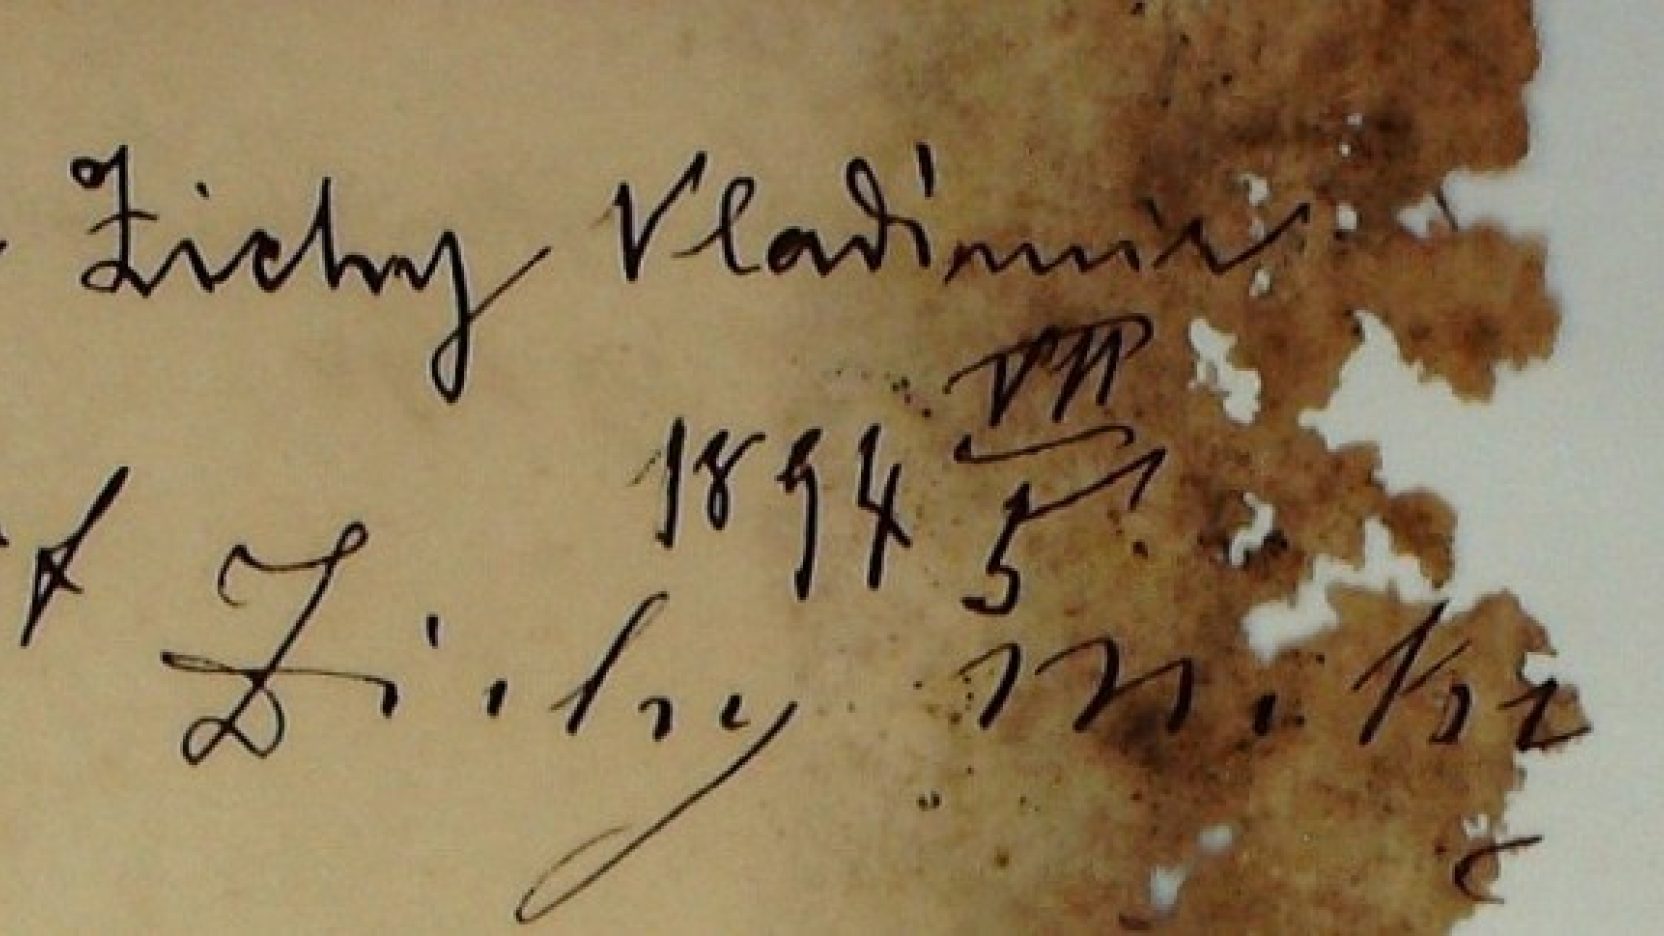 Zichy Vladimir
1894 VII/5
Zichy